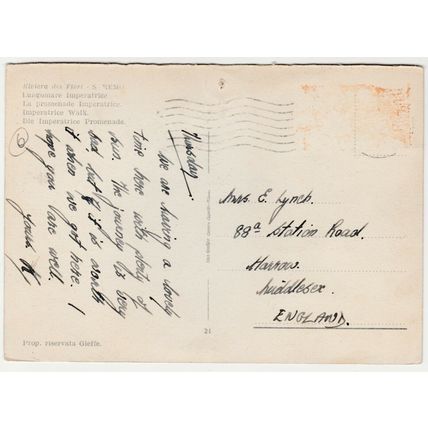 Riviera dei Fiori - S. REMO
Lungomare Imperatrice
La promenade Imperatrice.
Imperatrice Walk.
Die Imperatrice Promenade.
6
Thursday
We are having a lovely
time here with plenty of
sun. The journey is very
bad but it is worth
it when we get here. I
hope you are well.
yours
Mrs. E. Lynch.
88a Station Road.
Harrow
Middlesex.
ENGLAND.
21
Prop. riservata Gieffe.